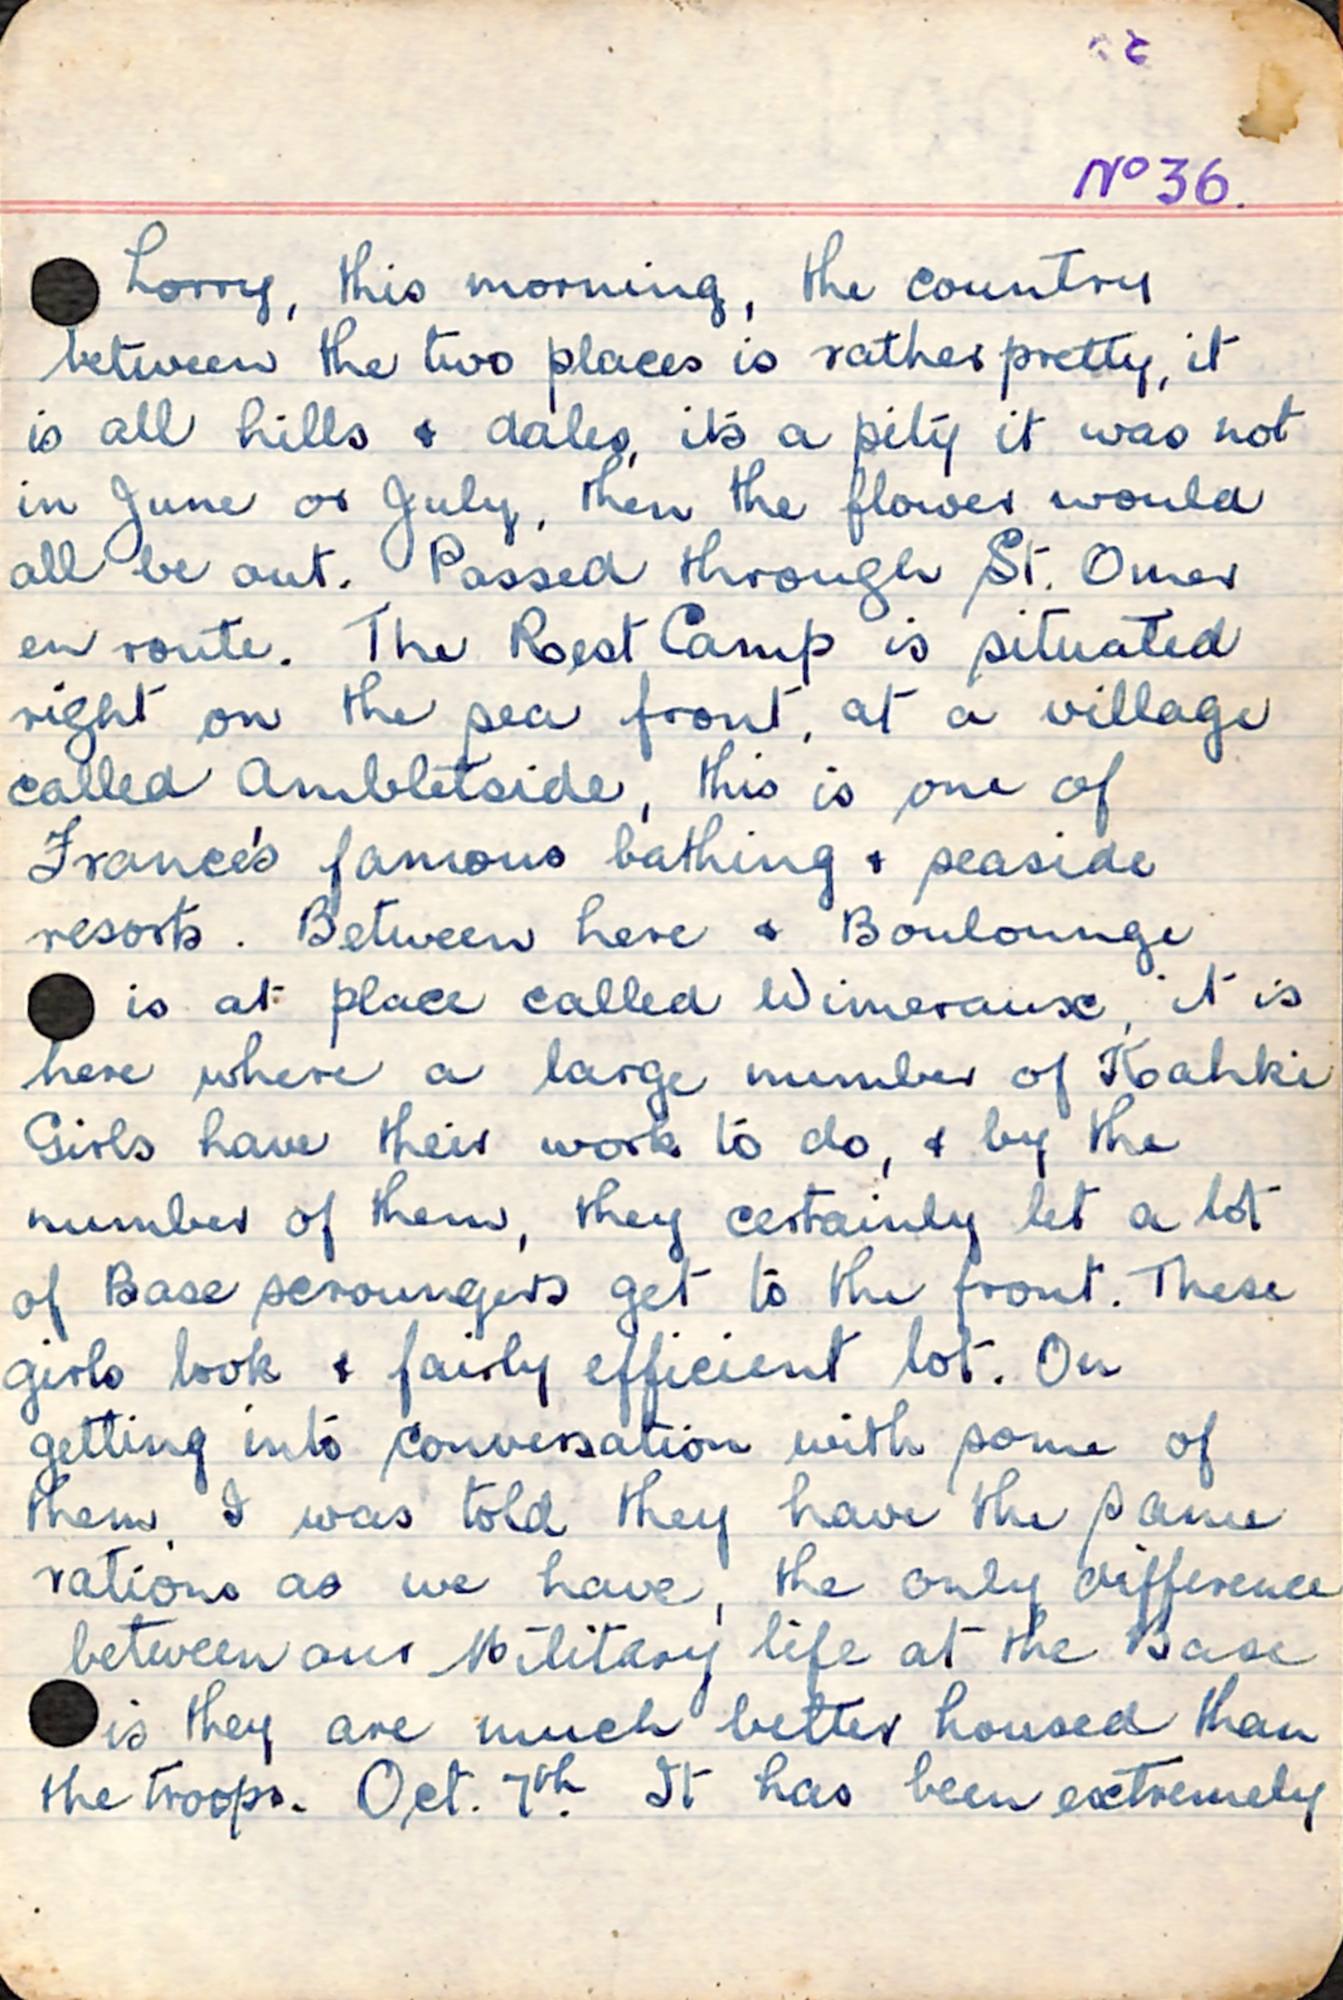 No 36.
Lorry, this morning, the country
between the two places is rather pretty, it
is all hills & dales, it's a pity it was not
in June or July, then the flower would
all be out. Passed through St. Omer
en route. The Rest Camp is situated
right on the sea front, at a village
called Ambletside, this is one of
France's famous bathing & seaside
resorts. Between here & Boulounge
is at place called Wimeraux, it is
here where a large number of Kahki
Girls have their work to do, & by the
number of them, they certainly let a lot
of Base scroungers get to the front. These
girls look & fairly efficient lot. On
getting into conversation with some of
them, I was told they have the same
rations as we have, the only difference
between our Military life at the Base
is they are much better housed than
the troops. Oct. 7th. It has been extremely